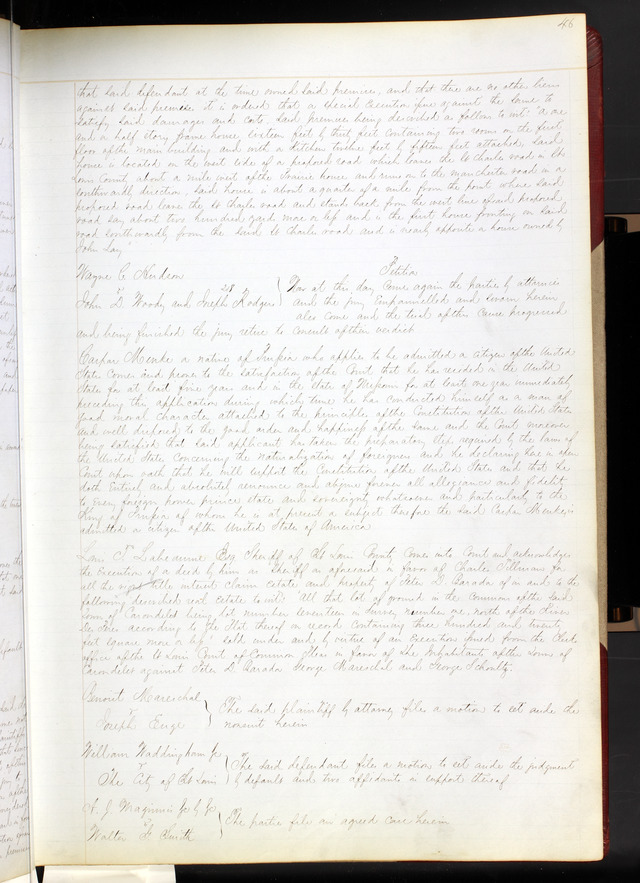 46
that said defendant at the time owned said premises, and that there are no other liens
against said premises it is ordered that a special execution issue against the same to
satisfy said damages and costs, said premises being described as follows to wit: "a one
and a half story frame house sixteen feet by thirty feet containing two rooms on the first
floor of the main building and with a kitchen twelve feet by fifteen feet attached, said
house is located on the west side of a proposed road which leaves the St Charles road in St
Louis County about a mile west of the Prairie house and runs on to the manchester road in a
southwardly direction, said house is about a quarter of a mile from the point where said
proposed road leaves the St Charles road and stands back from the west line of said proposed
road say about two hundred yards more or less and is the first house fronting on said
road southwardly from the said St Charles road and is nearly opposite a house owned by
John Lay"
Wayne C. Hudson
vs
John D. Woody and Joseph Rodgers
218
Petition
Now at this day come again the parties by attornies
and the jury empannelled and sworn herein
also come and the trial of this cause progressed
and being finished the jury retire to consult of their verdict
Caspar Menke a native of Prussia who applies to be admitted a citizen of the United
States comes and proves to the satisfaction of the Court that he has resided in the United
States for at least five years and in the state of Missouri for at least one year immediately
preceding this application during which time he has conducted himself as a man of
good moral character attached to the principles of the Constitution of the United States
and well disposed to the good order and happiness of the same and the Court moreover
being satisfied that said applicant has taken the preparatory steps required by the laws of
the United States concerning the naturalization of foreigners and he declaring here in open
Court upon oath that he will support the Constitution of the United States and that he
doth entirely and absolutely renounce and abjure forever all allegiance and fidelity
to every foreign power prince state and sovereignty whatsoever and particularly to the
King of Prussia of whom he is at present a subject therefore the said Caspar Menke is
admitted a citizen of the United States of America
Louis T. Labeaume Esq Sheriff of St Louis County comes into Court and acknowledges
the execution of a deed by him as Sheriff as aforesaid in favor of Charles Tillman for
all the right title interest claim estate and property of Peter D. Barada of in and to the
following described real estate to wit: "All that lot of ground in the Commons of the said
town of Carondelet being lot number seventeen in survey number one, north of the River
Des Peres according to the Plat thereof on record containing three hundred and twenty
feet square more or less" sold under and by virtue of an execution issued from the Clerks
office of the St Louis Court of Common Pleas in favor of The Inhabitants of the Town of
Carondelet against Peter D. Barada George Mareschal and George Schoultz.
Benoit Mareschal
vs
Joseph Enge
The said plaintiff by attorney files a motion to set aside the
nonsuit herein
William Waddingham Jr
vs
The City of St Louis
The said defendant files a motion to set aside the judgment
by default and two affidavits in support thereof
A. J. Maginnis
vs
Walton F. Smith
The parties file an agreed case herein